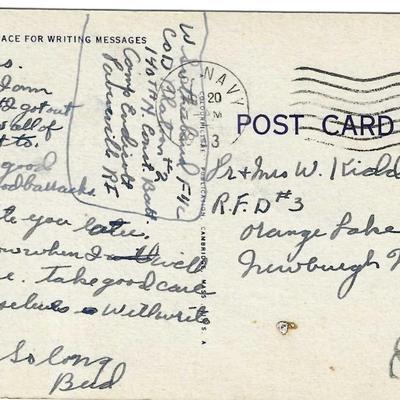 ACE FOR WRITING MESSAGES
POST CARD
NAVY
20
M
3
COLOURPICTURE PUBLICATION CAMBRIDGE, MASS. U.S.A
W Sutherland F4c
CoD Platoon #2
140TH Const Batt.
Camp Endicott
Davisville RI
s.
I am
I got out
all of
t to.
good
barracks.
te you later.
ow when I will
e. Take good care
selves Will write
So long
Bud
Mr & Mrs W. Kidd
R.F.D #3
Orange Lake
Newburgh N